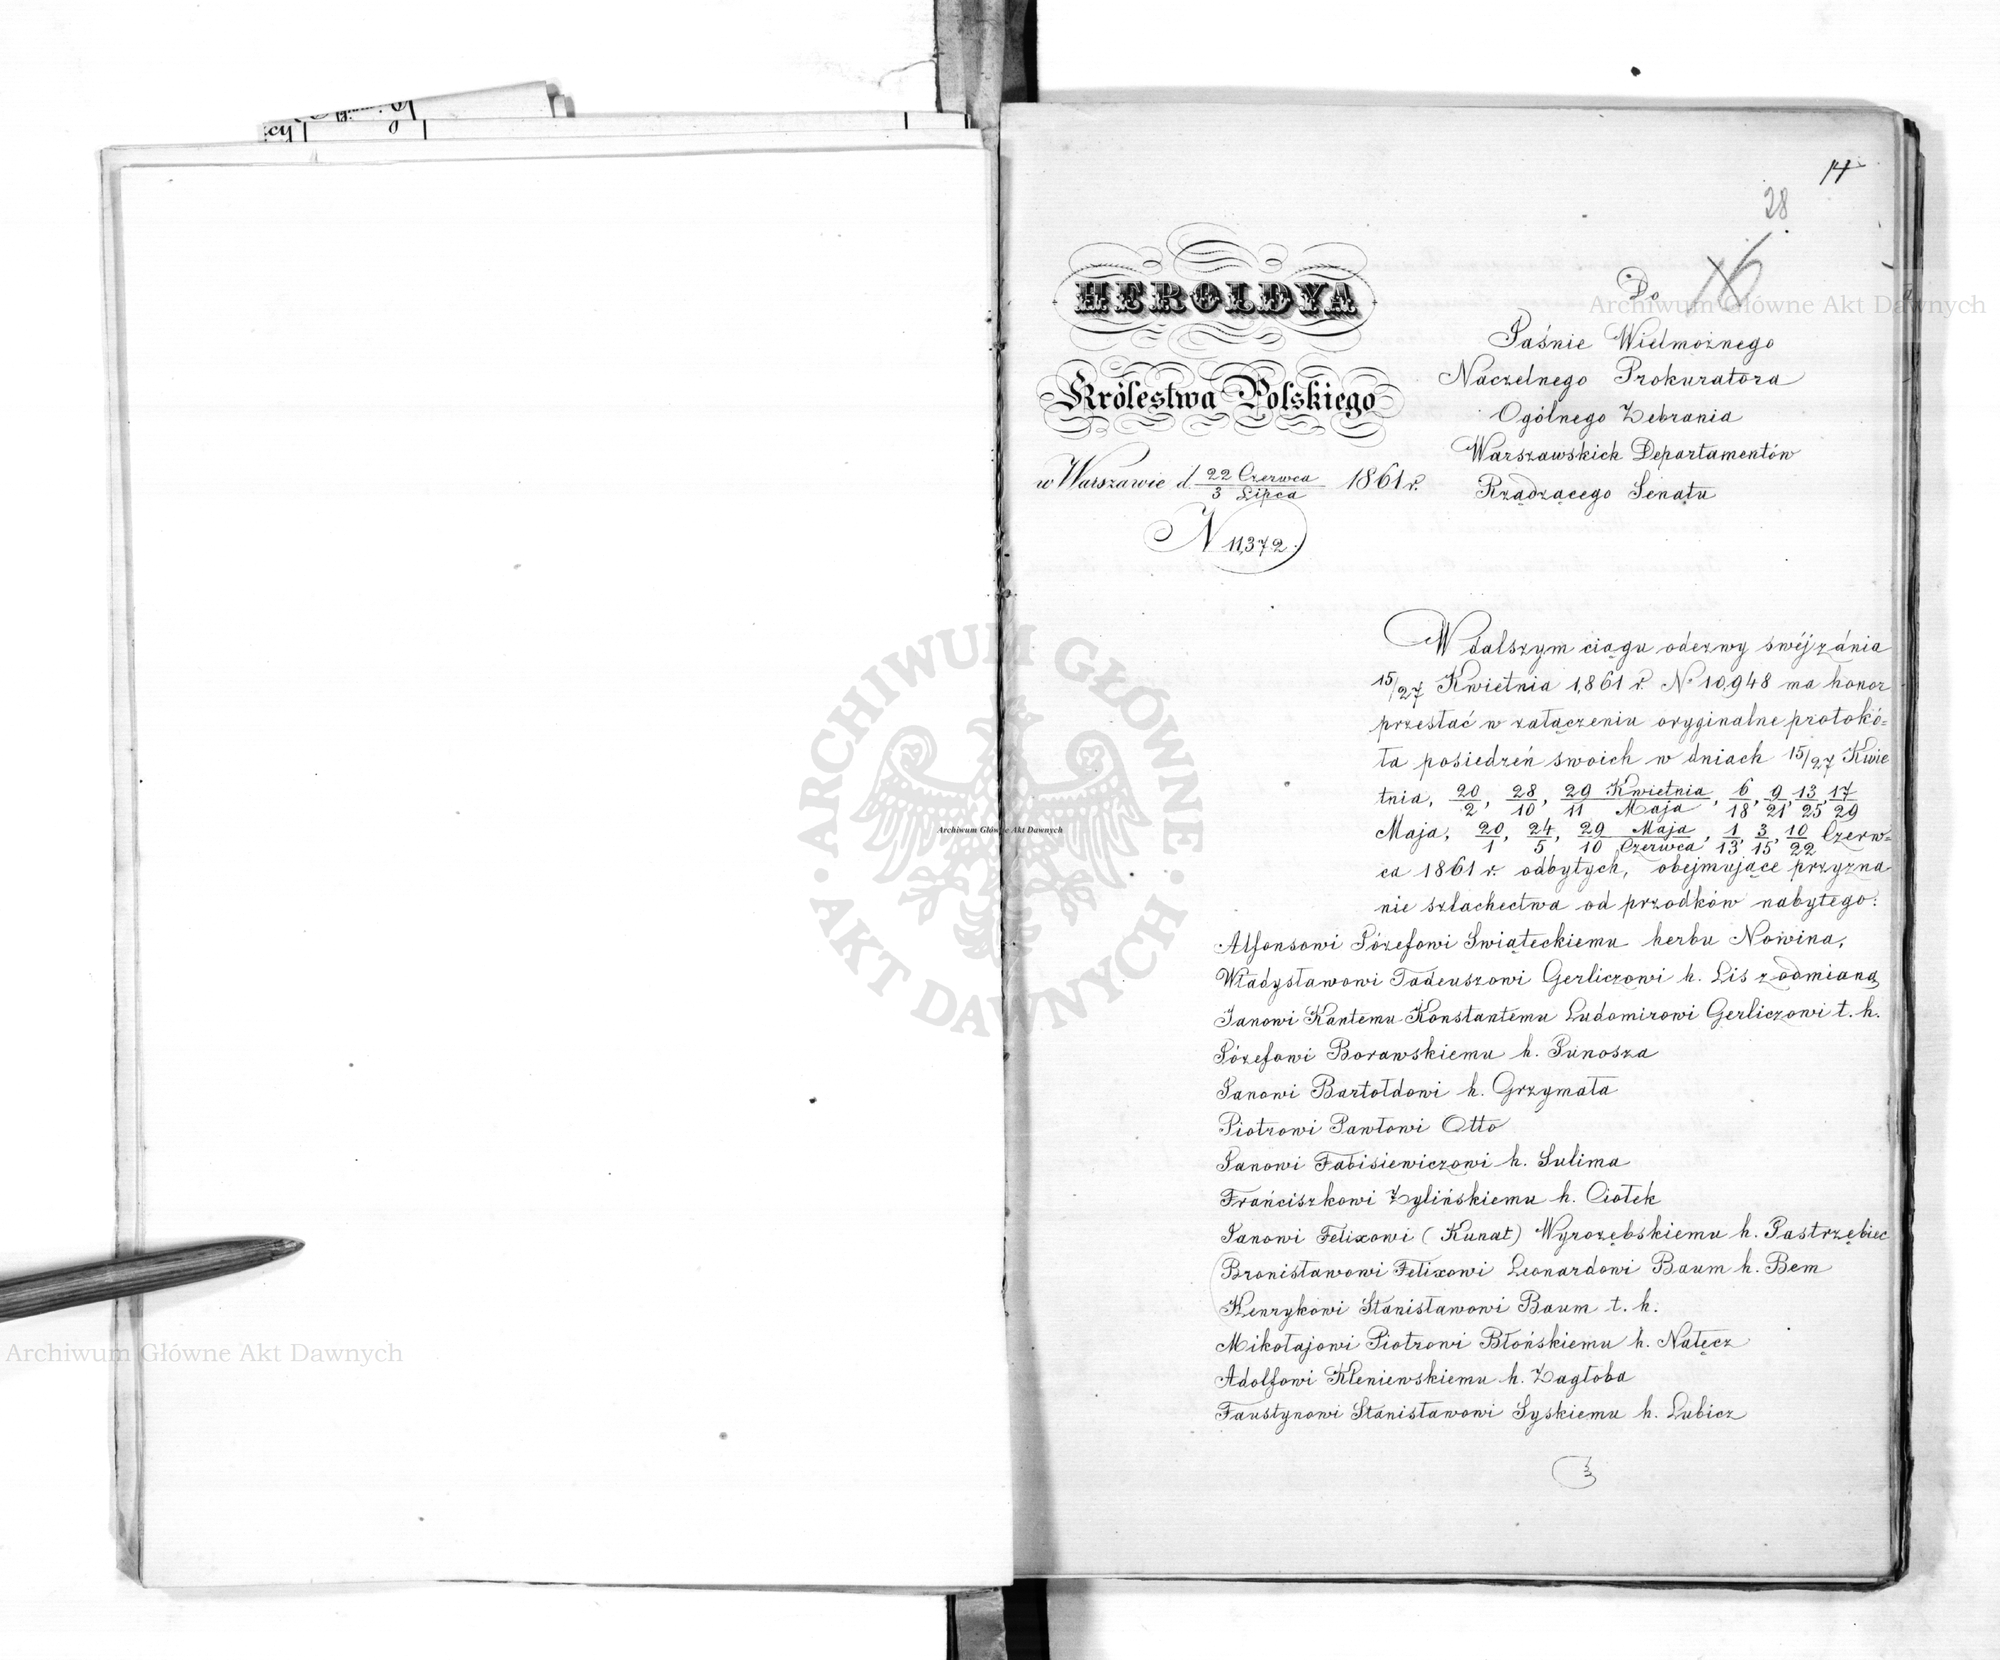 14
28
16
HEROLDYA
Królestwa Polskiego
w Warszawie d. 22 Czerwca / 3 Lipca 1861 r.
N 11,372.
Do
Jaśnie Wielmożnego
Naczelnego Prokuratora
Ogólnego Zebrania
Warszawskich Departamentów
Rządzącego Senatu
W dalszym ciągu odezwy swéj z dnia
15/27 Kwietnia 1,861 r. No 10,948 ma honor
przesłać w załączeniu oryginalne protokó=
ła posiedzeń swoich w dniach 15/27 Kwie
tnia, 20/2, 28/10, 29/11 Kwietnia/Maja, 6/18, 9/21, 13/25, 17/29
Maja, 20/1, 24/5, 29/10 Maja/Czerwca, 1/13, 3/15, 10/22 Czerw=
ca 1861 r. odbytych, obejmujące przyzna
nie szlachectwa od przodków nabytego:
Alfonsowi Józefowi Świąteckiemu herbu Nowina,
Władysławowi Tadeuszowi Gerliczowi h. Lis z odmianą
Janowi Kantemu Konstantemu Ludomirowi Gerliczowi t. h.
Józefowi Borawskiemu h. Junosza
Janowi Bartołdowi h. Grzymała
Piotrowi Pawłowi Otto
Janowi Fabisiewiczowi h. Sulima
Frańciszkowi Zylińskiemu h. Ciołek
Janowi Felixowi (Kunat) Wyrozębskiemu h. Jastrzębiec
Bronisławowi Felixowi Leonardowi Baum h. Bem
Henrykowi Stanisławowi Baum t. h.
Mikołajowi Piotrowi Błońskiemu h. Nałęcz
Adolfowi Kleniewskiemu h. Zagłoba
Faustynowi Stanisławowi Syskiemu h. Lubicz
ARCHIWUM GŁÓWNE AKT DAWNYCH
Archiwum Główne Akt Dawnych
Archiwum Główne Akt Dawnych
Archiwum Główne Akt Dawnych